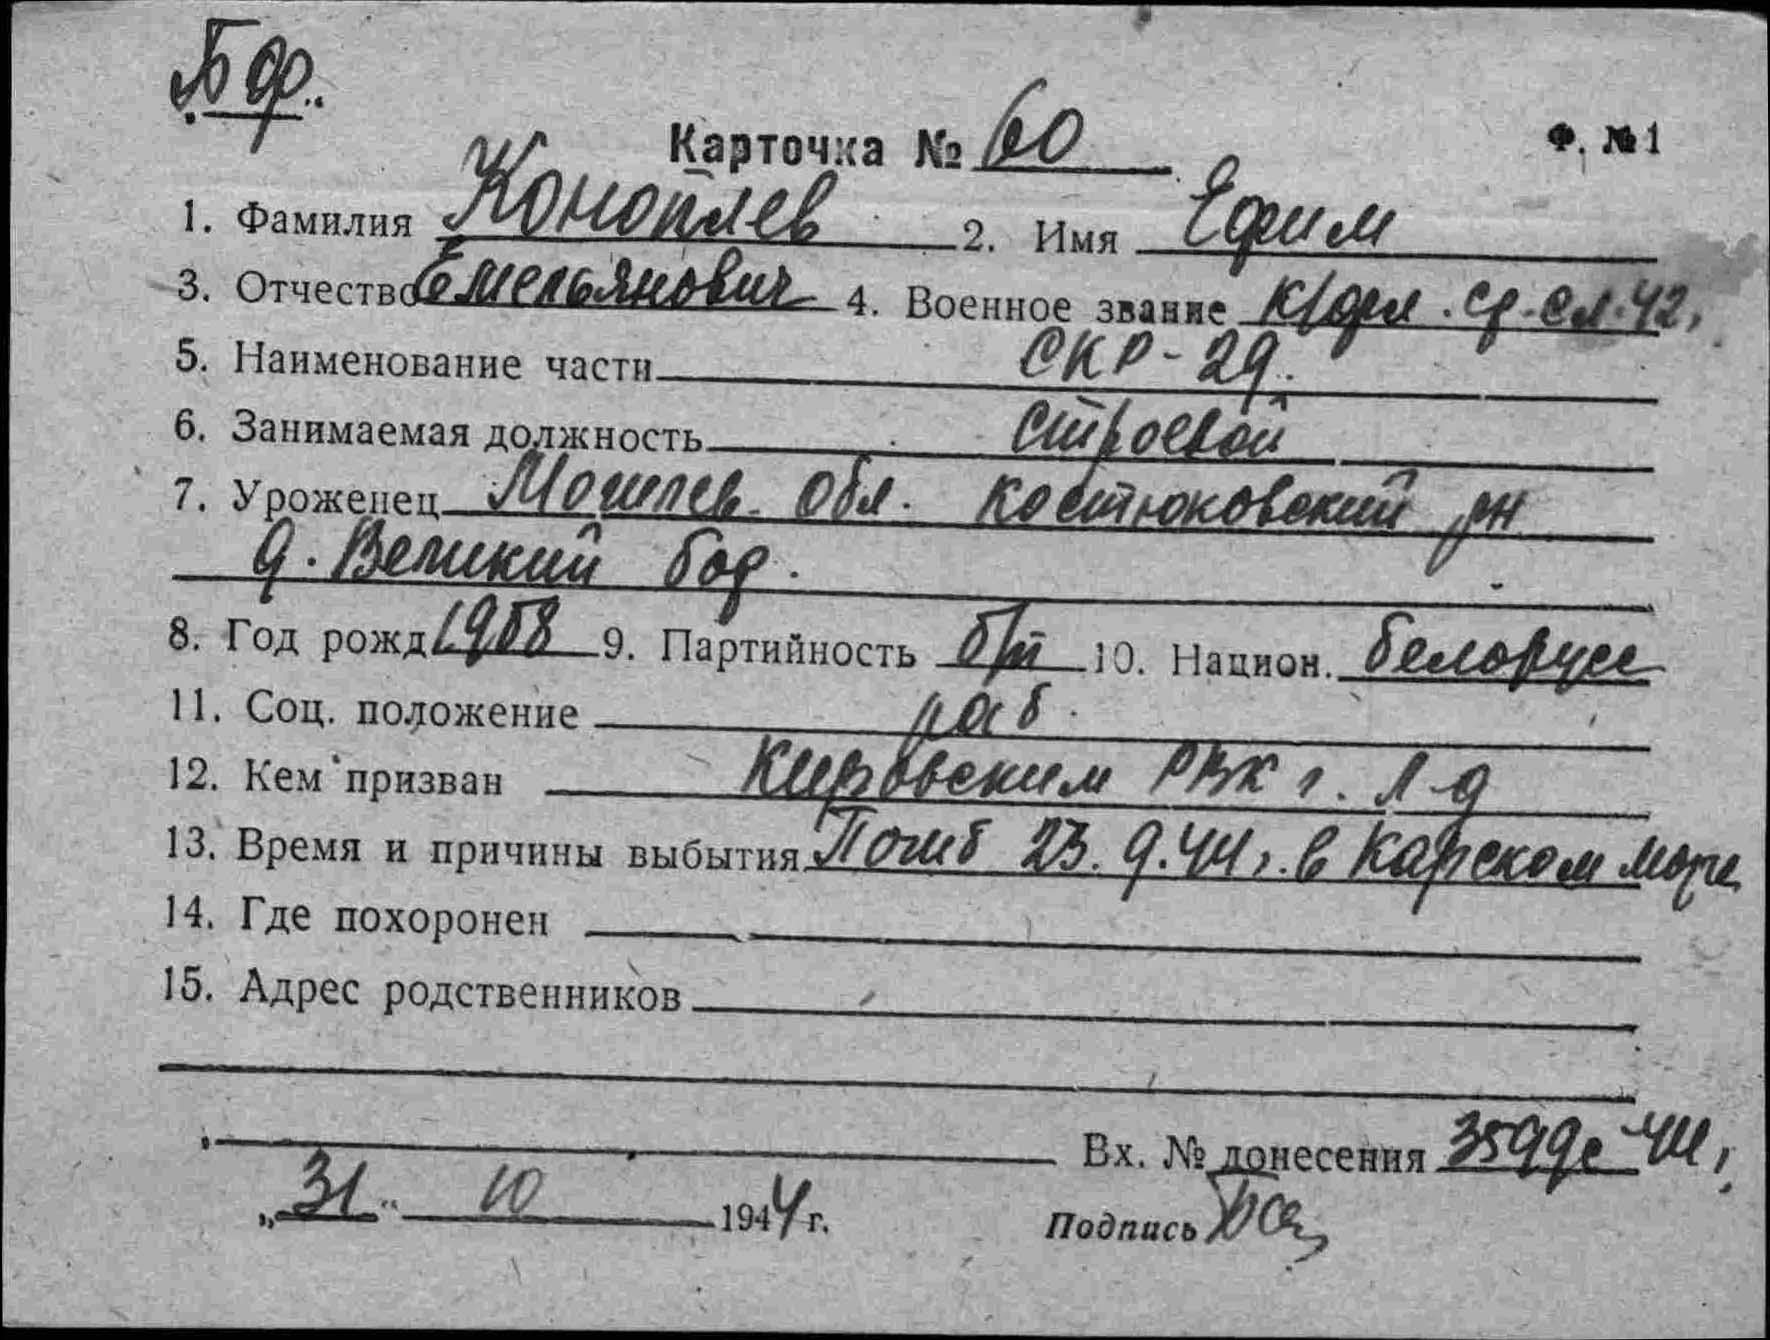 БФ.
Карточка № 60 Ф. №1
1. Фамилия Коноплев 2. Имя Ефим
3. Отчество Емельянович 4. Военное звание к/фл. ср. сл. 42г
5. Наименование части СКР-29.
6. Занимаемая должность строевой
7. Уроженец Могилев. обл. Костюковский рн
д. Великий бор.
8. Год рожд 1908 9. Партийность б/п 10. Национ. белорусс
11. Соц. положение раб.
12. Кем призван Кировским РВК г. Л-д
13. Время и причины выбытия Погиб 23.9.44г. в Карском море
14. Где похоронен
15. Адрес родственников
Вх. № донесения 3599с-44г
„31“ 10 1944г. Подпись